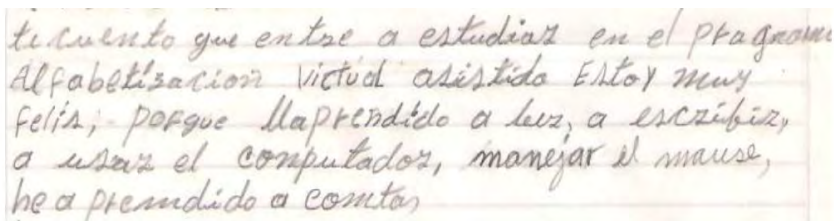 te cuento que entre a estudiar en el pragrama
Alfabetisacion Victud asistido Estoy muy
felis, porque llaprendido a leer, a escribir,
a usar el computador, manejar el mause,
he aprendido a contar